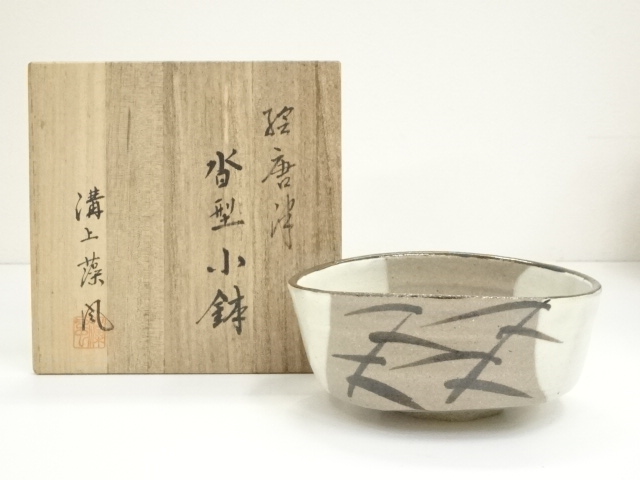 絵唐津
沓型小鉢
溝上藻風